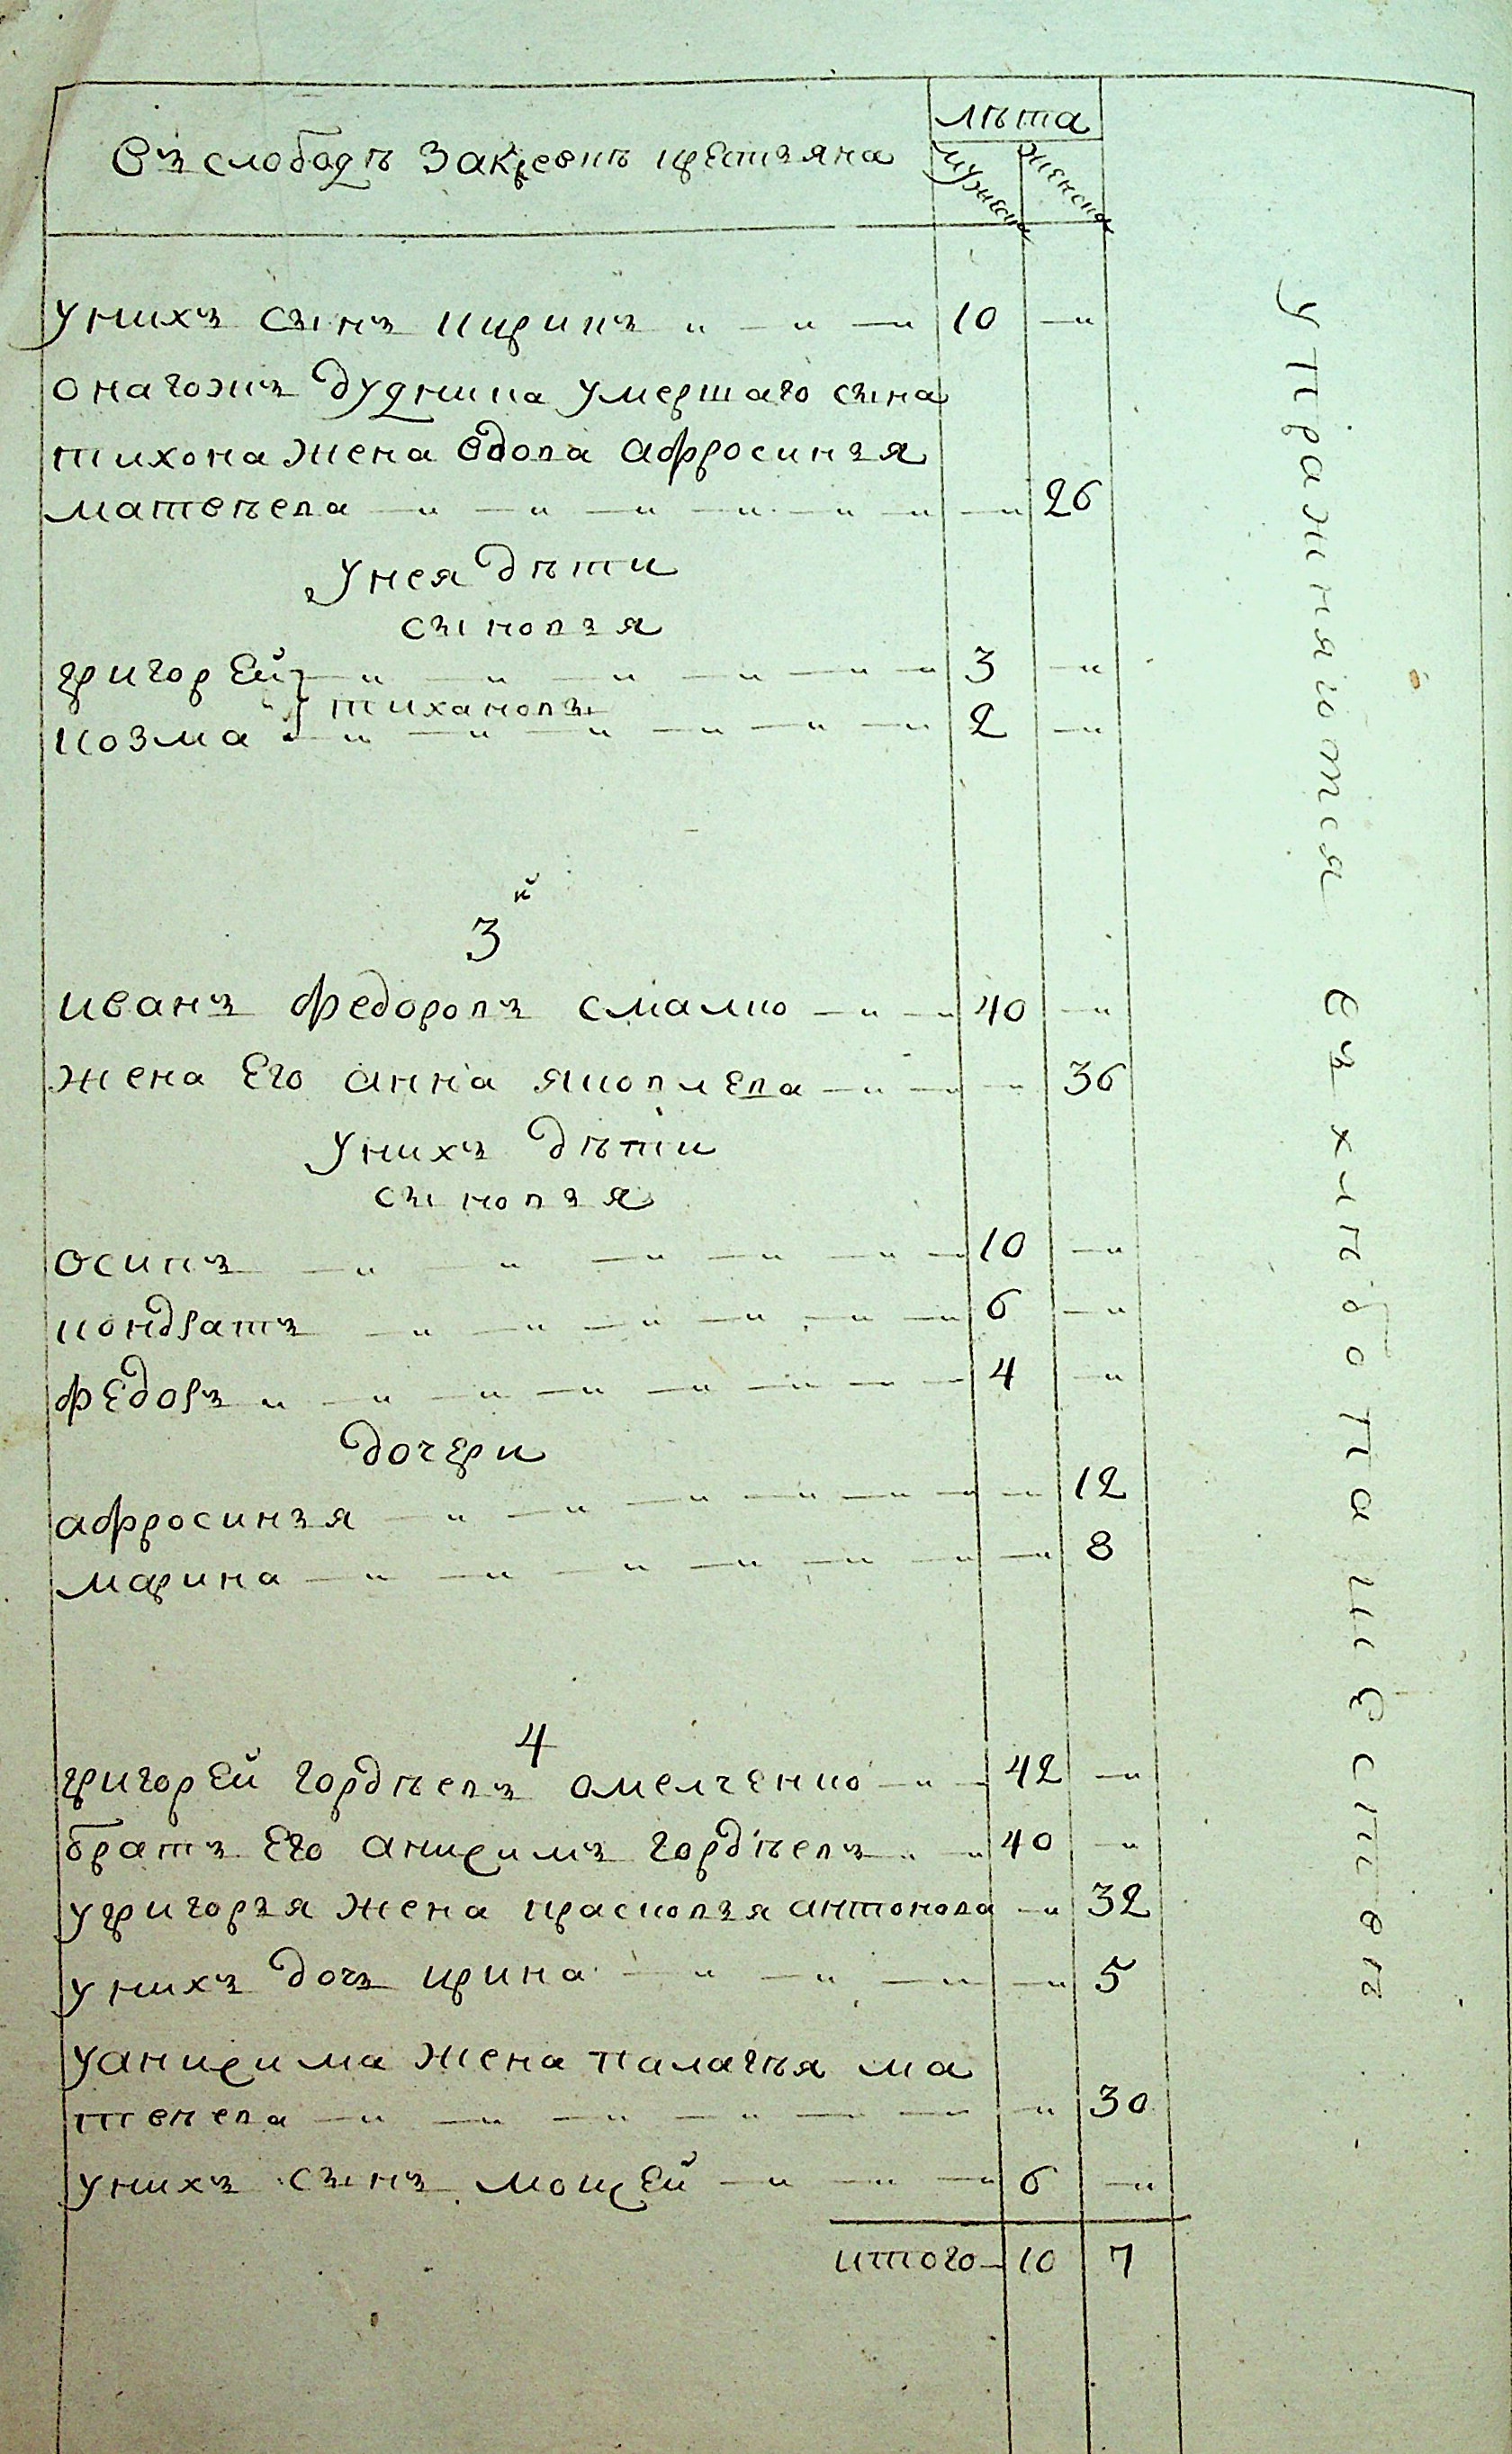 лѣта
Въ слободѣ Закревкѣ крестьяна
мужеск женско
у нихъ сынъ кирикъ 10
онагожъ дудника умершаго сына
тихона жена вдова афросинья
матвѣева 26
у нея дѣти
сыновья
григорей 3
тихановы
козма 2
3й
иванъ федоровъ смалко 40
жена Его анна яковлева 36
у нихъ дѣти
сыновья
осипъ 10
кондратъ 6
федоръ 4
дочери
афросинья 12
марина 8
4
григорей гордѣевъ омелченко 42
братъ Его анисимъ гордѣевъ 40
у григорья жена прасковья антонова 32
у нихъ дочь ирина 5
у анисима жена палагѣя ма
твѣева 30
у нихъ сынъ мокей 6
итого 10 7
упражняются въ хлѣбопашествѣ